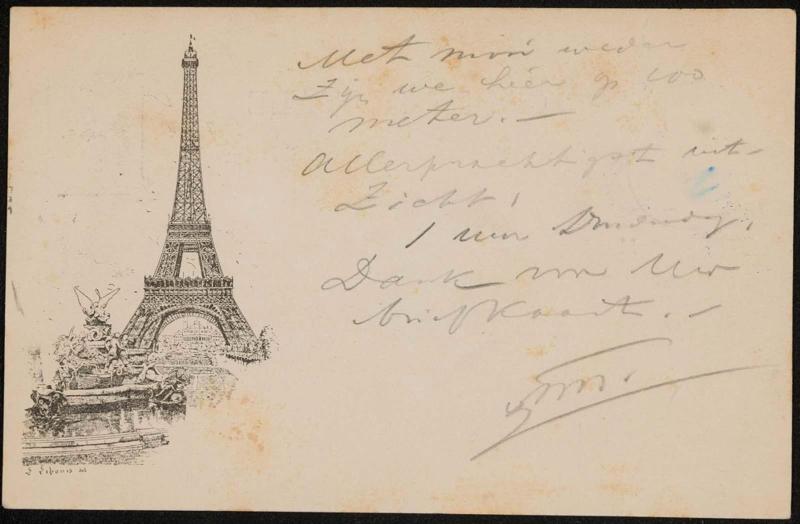 Met mooi weder
Zijn we hier op 100
meter. —
Allerprachtigst uit-
Zicht!
1 uur
Dank voor Uw
briefkaart. —